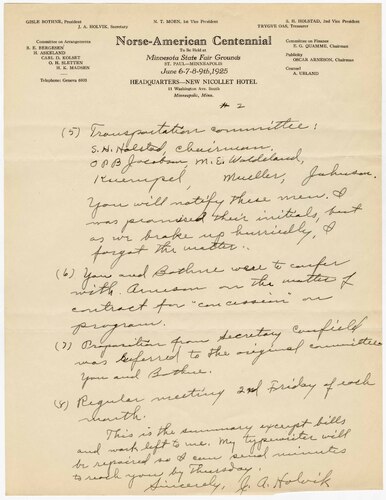 GISLE BOTHNE, President
N. T. MOEN, 1st Vice President
S. H. HOLSTAD, 2nd Vice President
J. A. HOLVIK, Secretary
TRYGVE OAS, Treasurer
Norse-American Centennial
To Be Held at
Minnesota State Fair Grounds
ST. PAUL—MINNEAPOLIS
June 6-7-8-9th, 1925
HEADQUARTERS—NEW NICOLLET HOTEL
Washington Ave. South
Minneapolis, Minn.
Committee on Arrangements
H. ASKELAND
CARL D. KOLSET
O. H. SLETTEN
H. K. MADSEN
Telephone: Geneva
Committee on Finance
E. G. QUAMME, Chairman
Publicity
OSCAR ARNESON, Chairman
Counsel
A. UELAND
# 2
(5) Transportation committee:
S. H. Holstad, Chairman.
O P B Jacobson, M. E. Waldeland,
Kuempel, Mueller, Johnson.
You will notify these men. I
was promised their initials, but
as we broke up hurriedly, I
forgot the matter.
(6) You and Bothne were to confer
with Arneson on the matter of
contract for "concession" on
program.
(7) Proposition from Secretary Canfield
was referred to the original committee
You and Bothne.
(8) Regular meeting 2nd Friday of each
month.
This is the summary except bills
and work left to me. My typewriter will
be repaired so I can send minutes
to reach you by Thursday.
Sincerely, J. A. Holvik